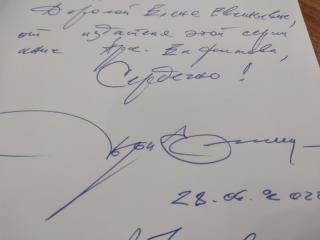 Дорогой Елене Евгеньевне,
от издателя этой серии
книг Арк. Елфимова,
Сердечно!
28.04.2022